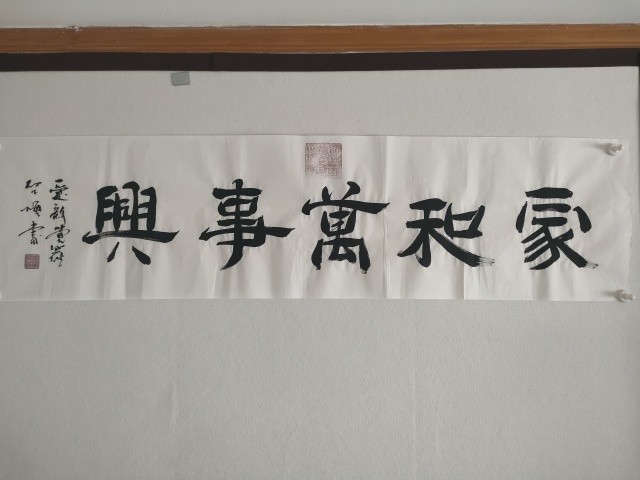 家和萬事興
愛新覺羅